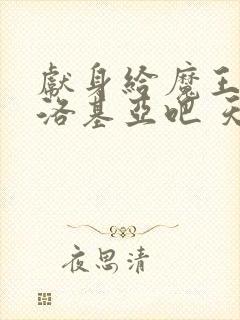 獻身給魔王
洛基亞吧 天
夜思清